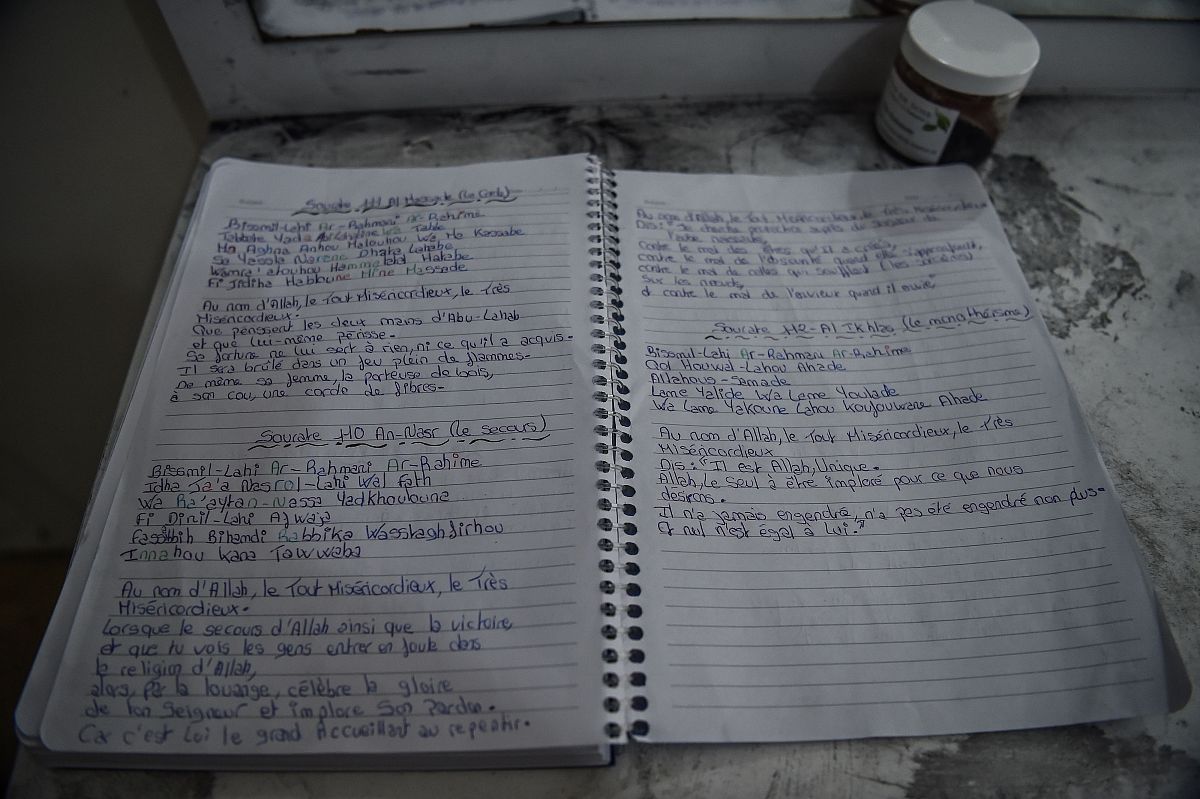 Sourate 111 Al Massade (La Corde)
Bissmil-Lahi Ar-Rahmani Ar-Rahime
Tabbate Yada Wa Tabbe
Ma Aghna Anhou Malouhou Wa Ma Kassabe
Sa Yassla Narane Dhata Lahabe
Wamra'atouhou Hammalatal Hatabe
Fi Jidiha Habboune Mine Massade
Au nom d'Allah, le Tout Miséricordieux, le Très
Miséricordieux.
Que périssent les deux mains d'Abu-Lahab
et que lui-même périsse.
Sa fortune ne lui sert à rien, ni ce qu'il a acquis.
Il sera brûlé dans un feu plein de flammes.
De même sa femme, la porteuse de bois,
à son cou, une corde de fibres.
Sourate 110 An-Nasr (le secours)
Bissmil-Lahi Ar-Rahmani Ar-Rahime
Idha Ja'a Nasrol-Lahi Wal Fath
Wa Ra'aytan-Nassa Yadkhouloune
Fi Dinil-Lahi Afwaja
Fassabih Bihamdi Rabbika Wasstaghfirhou
Innahou Kana Tawwaba
Au nom d'Allah, le Tout Miséricordieux, le Très
Miséricordieux.
Lorsque le secours d'Allah ainsi que la victoire,
et que tu vois les gens entrer en foule dans
la religion d'Allah,
alors, par la louange, célèbre la gloire
de ton Seigneur et implore Son Pardon.
Car c'est Lui le grand Accueillant au repentir.
Au nom d'Allah, le Tout Miséricordieux, le Très Miséricordieux
Dis: "Je cherche protection auprès du Seigneur de
l'aube naissante,
contre le mal des êtres qu'Il a créés,
contre le mal de l'obscurité quand elle s'approfondit,
contre le mal de celles qui soufflent
sur les nœuds,
et contre le mal de l'envieux quand il envie"
Sourate 112-Al Ikhlas (le monothéisme)
Bissmil-Lahi Ar-Rahmani Ar-Rahime
Qol Houwal-Lahou Ahade
Allahous-Samade
Lame Yalide Wa Lame Youlade
Wa Lame Yakoune Lahou Koufouwane Ahade
Au nom d'Allah, le Tout Miséricordieux, le Très
Miséricordieux
Dis: "Il est Allah, Unique.
Allah, Le Seul à être imploré pour ce que nous
désirons.
Il n'a jamais engendré, n'a pas été engendré non plus.
Et nul n'est égal à Lui."